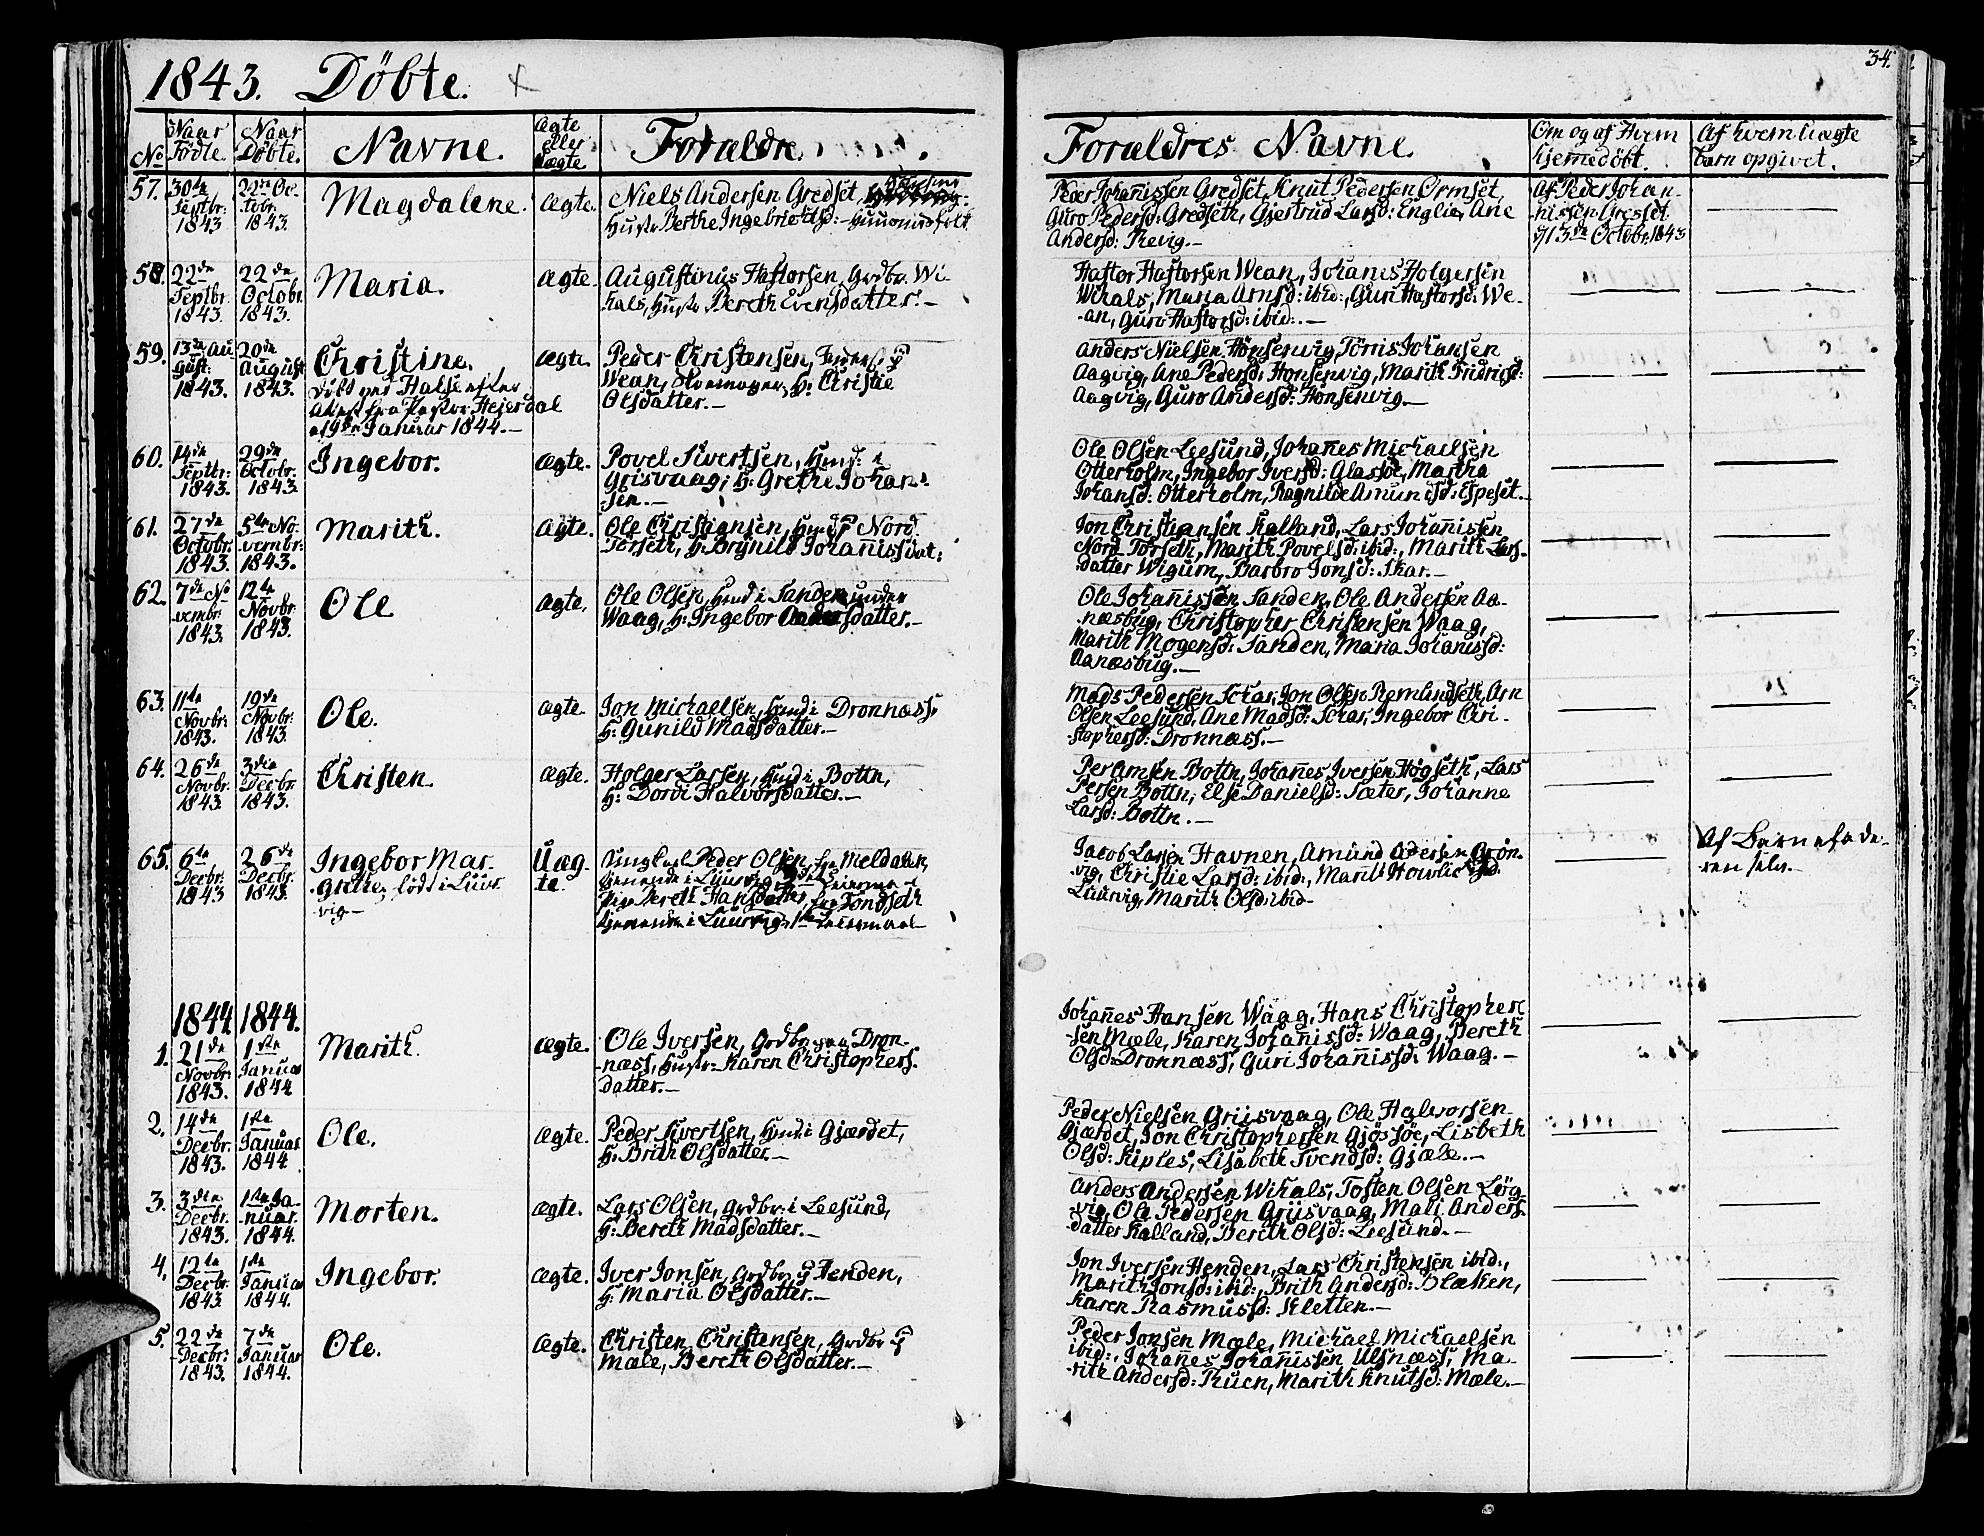 1843. Döbte.
34.
No
Naar Födte.
Naar Döbte.
Navne.
Ægte eller Uægte
Forældre
Forældres Navne.
Om og af Hvem hjemedöbt.
Af hvem Uægte barn opgivet.
57.
30te Septbr: 1843
22de Octobr. 1843.
Magdalene.
Ægte.
Niels Andersen Gredset,
Hustr. Berthe Ingebrigtsd:
Peder Johañissen Gredset, Knut Pedersen Ormset,
Guro Pedersd: Gredseth, Gjertrud Larsd: Englie, Ane
Andersd: Revig.—
Af Peder Johan-
nissen Gresset
d/ 3de Octobr. 1843
58.
22de Septbr. 1843.
22de Octobr. 1843.
Maria.
Ægte.
Augustinus Hastorsen, Grdbr. Wi-
hals, Hustr. Bereth Evensdatter.—
Hastor Hastorsen Wean, Johañes Holgersen
Wihals, Maria Arnsd: ibid:, Guri Hastorsd: We-
-an, Guro Hastorsd: ibid:.—
59.
13de August: 1843.
20de August 1843.
Christine.
döbt ved Halse efter
Attest fra Pastor Hejerdal
af 9de Januar 1844.—
Ægte.
Peder Christensen,
Wean, H: Christie
Olsdatter.—
Anders Nielsen Honsenvig, Töris Johansen
Aagvig, Ane Pedersd: Honsenvig, Marith Fridricsd:
Aagvig, Guro Andersd: Honsenvig.—
60.
14de Septbr: 1843.
29de Octobr. 1843.
Ingebor.
Ægte.
Povel Sivertsen, Husd: i
Grisvaag, H: Grethe Johan-
sen.—
Ole Olsen Leesund, Johañes Michaelsen
Otterholm, Ingebor Iversd: Glasöe, Martha
Johansd: Otterholm, Ragnilde Amundsd: Espeset.—
61.
27de Octobr. 1843.
5te Novembr: 1843.
Marith.
Ægte.
Ole Christiansen, Husd p Nord
Torseth, H: Brynild Johañissdat:
Jon Christiansen Kalland, Lars Johañissen
Nord Torseth, Marith Povelsd: ibid:, Marith Lars-
datter Wigum, Barbro Jonsd: Skar.—
62.
7de November 1843.
12te Novbr. 1843.
Ole
Ægte.
Ole Olsen, Husd i Sanden under
Waag, H: Ingebor Andersdatter.—
Ole Johañissen Sanden, Ole Andersen Aa-
næsbug, Christopher Christensen Waag,
Marith Mogensd: Sanden, Maria Johañissd:
Aanæsbug.—
63.
11te Novbr: 1843.
19de Novbr: 1843.
Ole.
Ægte.
Jon Michaelsen, Husd i Dronnæss,
H: Gunild Madsdatter.—
Mads Pedersen Schar, Jon Olsen Remlindseth, Arn
Olsen Leesund, Ane Madsd: Schar, Ingebor Chri-
stophersd: Dronnæss.—
64.
26de Novbr. 1843.
3die Decbr. 1843.
Christen.
Ægte.
Holger Larsen, Husd i Bottn,
H: Dordi Halvorsdatter.—
Per Arnsen Bottn, Johañes Iversen Högseth, Lars
Persen Bottn, Else Danielsd: Sæter, Johanne
Larsd: Bottn.—
65.
6te Decbr: 1843
26de Decbr. 1843.
Ingebor Mar-
grethe, född i Luur
vig—
Uæg-
te.
Ungkarl Peder Olsen, fra Meldalen,
tjenende i Luurvig
Pige Bereth Hansdatter, fra Fondseth
tjenende i Luurvig, 1ste Leiermaal
Jacob Larsen Havnen, Amund Andersen Grön-
vig, Christie Larsd: ibid:, Marith
Luurvig, Marith Olsd: ibid—
Af Barnefade-
ren selv.
1844.
1844.
1.
21de Novbr: 1843.
1ste Januar 1844
Marith.
Ægte.
Ole Iversen, Grdbr. paa Dron-
-næss, Hustr: Karen Christophers-
datter.—
Johañes Hansen Waag, Hans Christopher-
-sen Mæle, Karen Johañissd: Waag, Bereth
Olsd: Dronnæss, Guri Johañissd: Waag.—
2.
14de Decbr: 1843.
1ste Januar 1844
Ole.
Ægte.
Peder Sivertsen, Husd i Gjærdet,
H: Brith Olsdatter.—
Peder Nielsen Griisvaag, Ole Halvorsen
Gjærdet, Jon Christophersen Gjössöe, Lisbeth
Olsd: Kiples, Lisabeth Svendsd: Gjæle.—
3.
3die Decbr. 1843.
1ste Januar. 1844.
Morten.
Ægte.
Lars Olsen, Grdbr: i Leesund,
H: Bereth Madsdatter.—
Anders Andersen Wihals, Tosten Olsen Lög-
vig, Ole Pedersen Griisvaag, Mali Anders-
datter Kalland, Bereth Olsd: Leesund.—
4.
12te Decbr. 1843
1ste Januar 1844.
Ingebor.
Ægte.
Iver Jonsen, Grdbr. p Henden,
H: Maria Olsdatter.—
Jon Iversen Henden, Lars Christensen ibid:,
Marith Jonsd: ibid:, Brith Andersd: Blækken,
Karen Rasmussd: Kletten.—
5.
22de Decbr: 1843.
7de Januar 1844.
Ole.
Ægte.
Christen Christensen, Grdbr p
Mæle, Bereth Olsdatter.—
Peder Jonsen Mæle, Michael Michaelsen
ibid:, Johañes Johañissen Ulsnæss, Ma-
-rith Andersd: Ruen, Marith Knutsd: Mæle.—